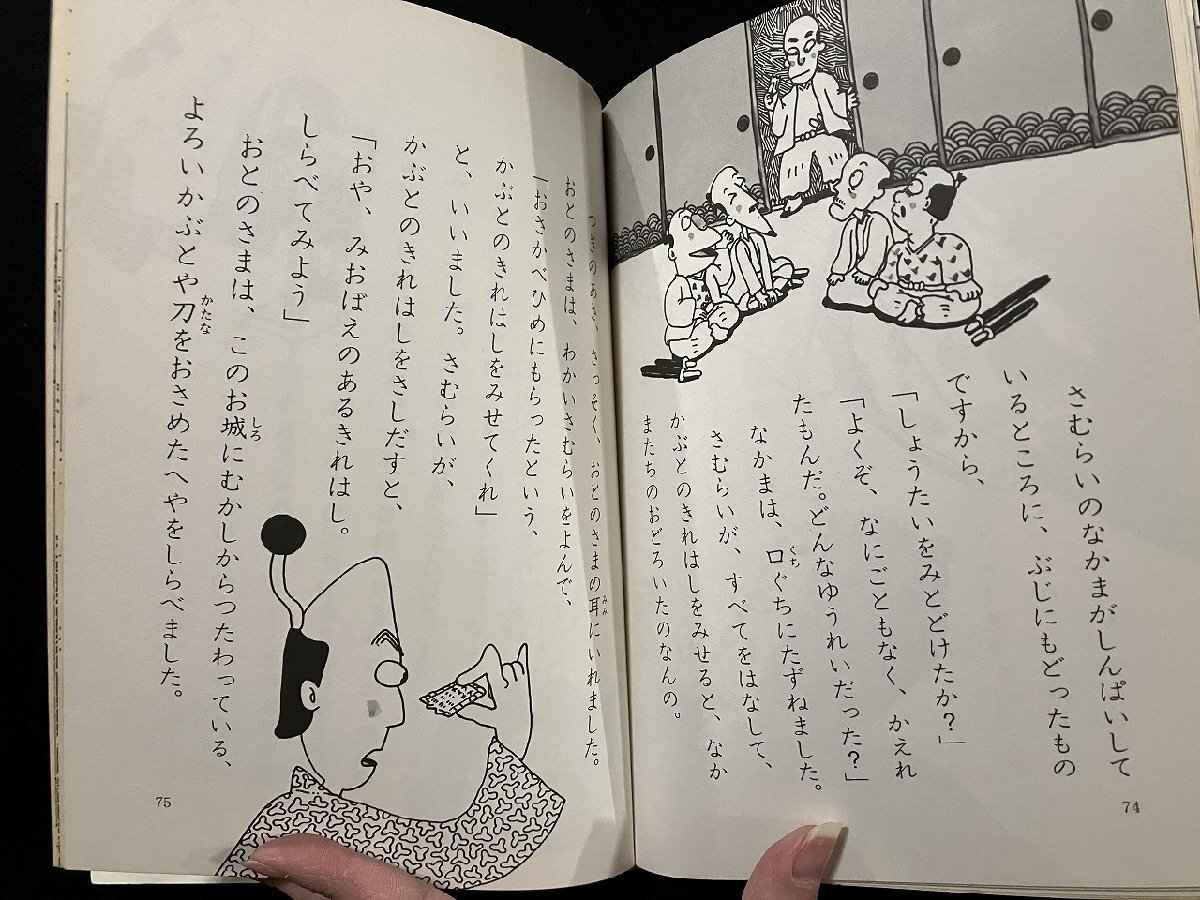 さむらいのなかまがしんぱいして
いるところに、ぶじにもどったもの
ですから、
「しょうたいをみとどけたか？」
「よくぞ、なにごともなく、かえれ
たもんだ。どんなゆうれいだった？」
なかまは、口ぐちにたずねました。
くち
さむらいが、すべてをはなして、
かぶとのきれはしをみせると、なか
またちのおどろいたのなんの。
74
つぎのあさ、さっそく、おとのさまの耳にいれました。
みみ
おとのさまは、わかいさむらいをよんで、
「おさかべひめにもらったという、
かぶとのきれはしをみせてくれ」
と、いいました。さむらいが、
かぶとのきれはしをさしだすと、
「おや、みおぼえのあるきれはし。
しらべてみよう」
おとのさまは、このお城にむかしからつたわっている、
しろ
よろいかぶとや刀をおさめたへやをしらべました。
かたな
75